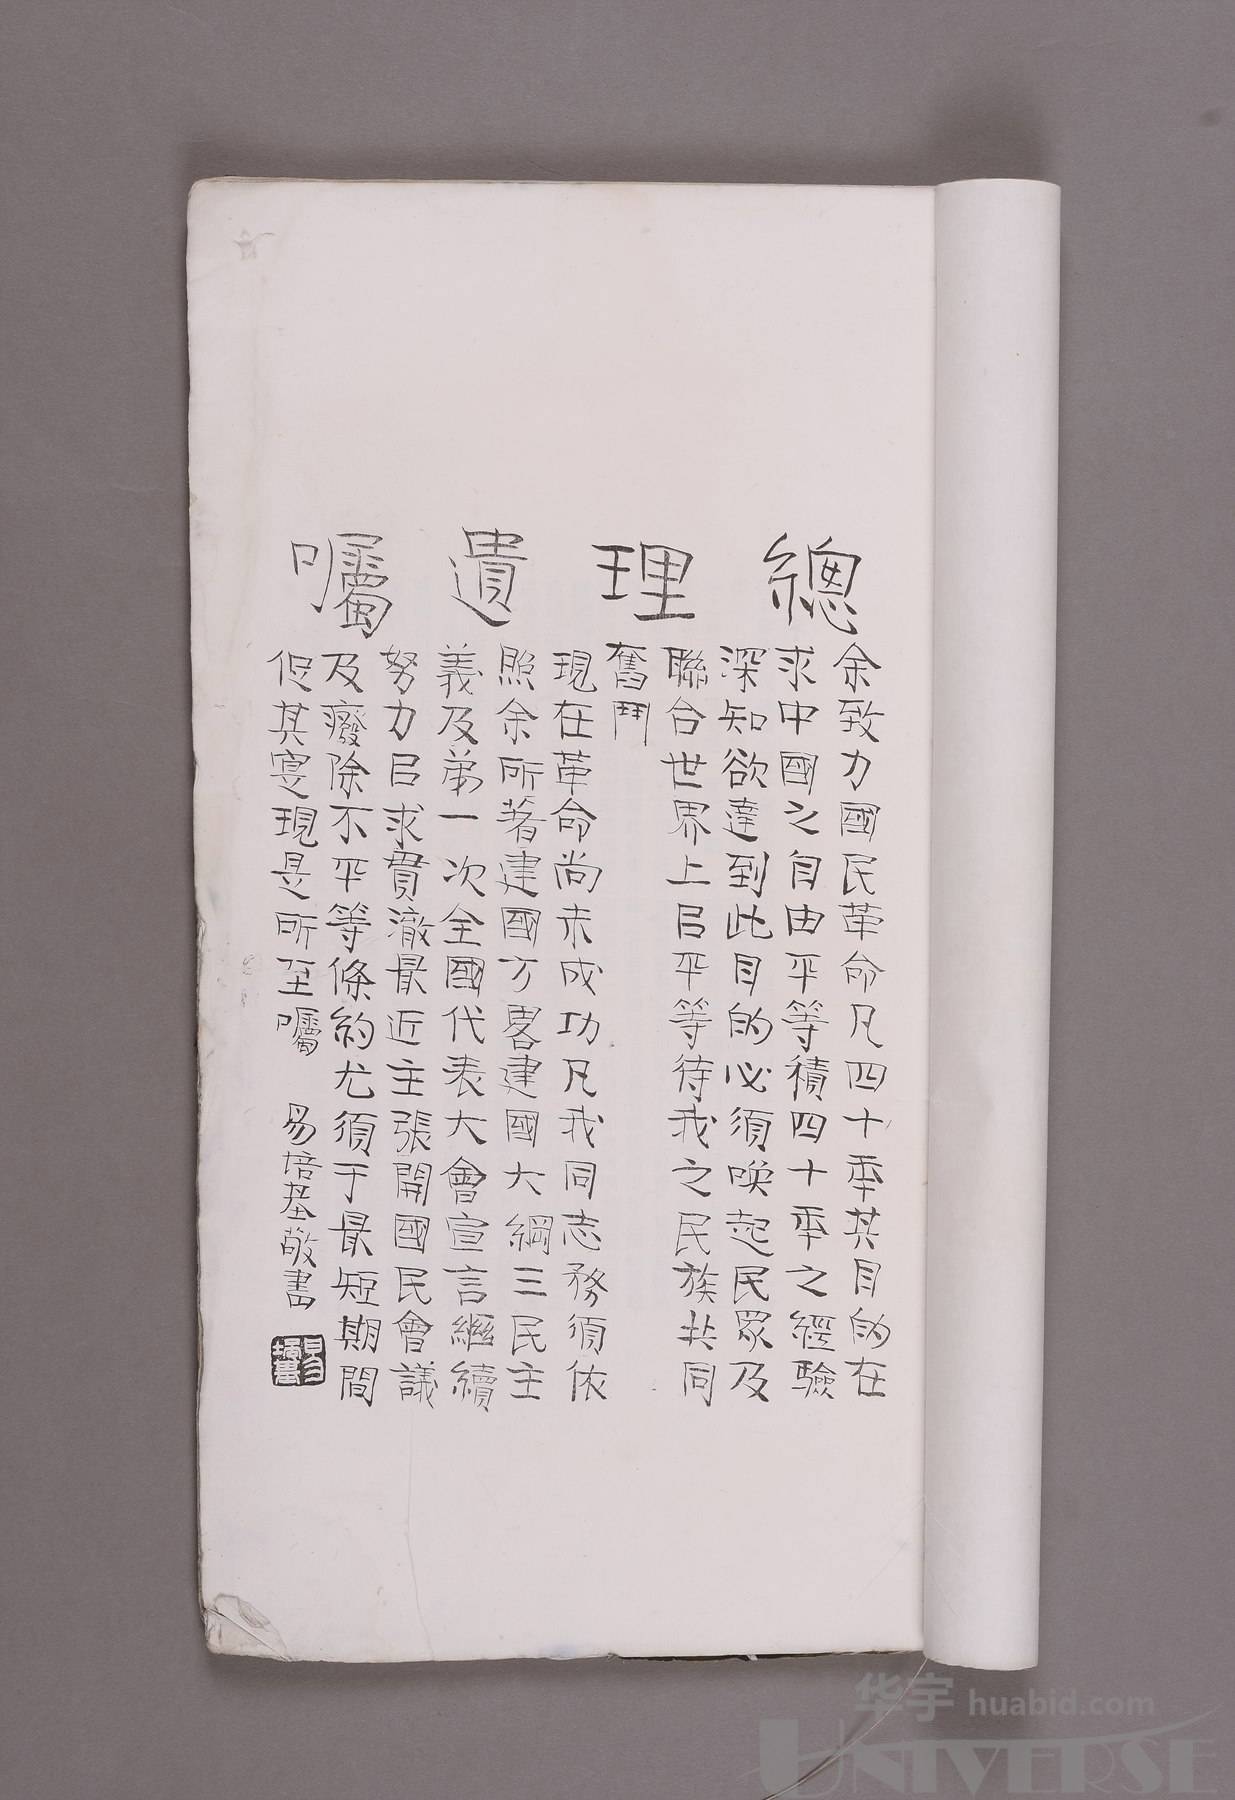 總理遺囑
余致力國民革命凡四十年其目的在
求中國之自由平等積四十年之經驗
深知欲達到此目的必須喚起民眾及
聯合世界上㠯平等待我之民族共同
奮鬥
現在革命尚未成功凡我同志務須依
照余所著建國方畧建國大綱三民主
義及弟一次全國代表大會宣言繼續
努力㠯求貫澈最近主張開國民會議
及癈除不平等條約尤須于最短期間
促其寔現是所至囑
易培基敬書
华宇 huabid.com
UNIVERSE